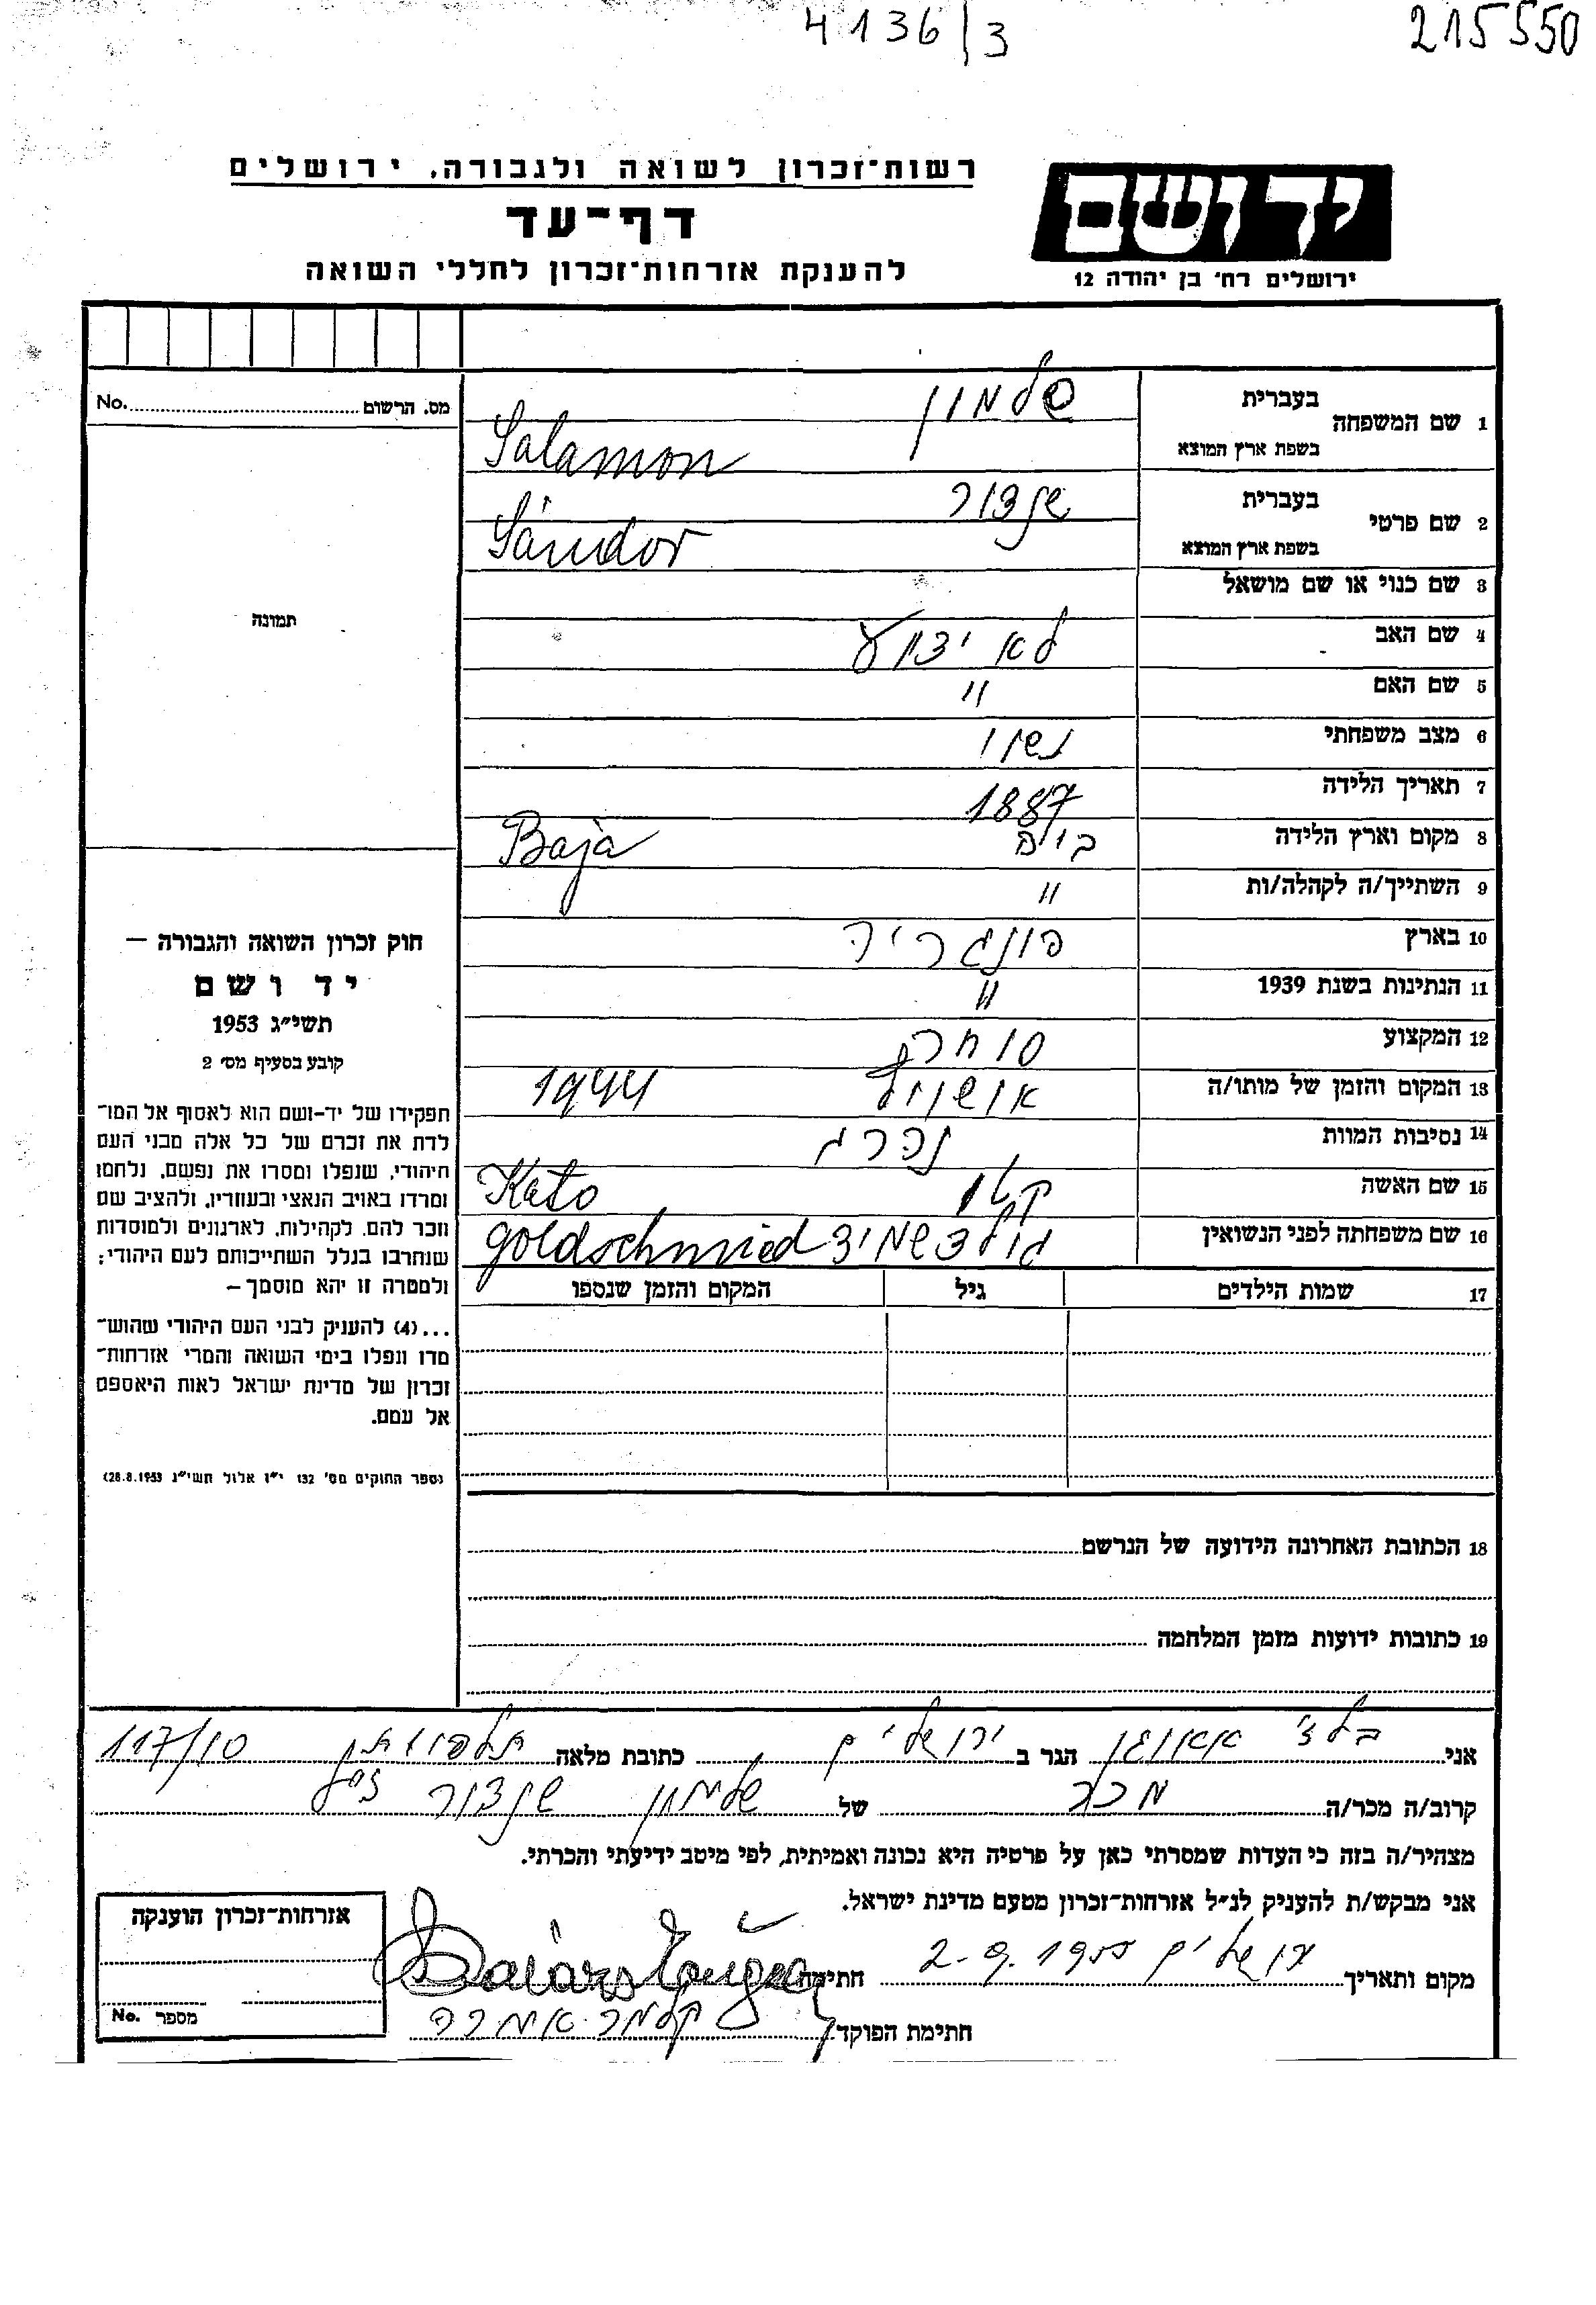 4136/3
215550
רשות־זכרון לשואה ולגבורה, ירושלים
דף־עד
להענקת אזרחות־זכרון לחללי השואה
יד ושם
ירושלים רח' בן יהודה 12
No. מס. הרשום
1 שם המשפחה
בעברית שלמון
בשפת ארץ המוצא Salamon
2 שם פרטי
בעברית שנדור
בשפת ארץ המוצא Sándor
3 שם כנוי או שם מושאל
4 שם האב לא ידוע
5 שם האם "
6 מצב משפחתי נשוי
7 תאריך הלידה 1887
8 מקום וארץ הלידה Baja
9 השתייך/ה לקהלה/ות "
10 בארץ הונגריה
11 הנתינות בשנת 1939 "
12 המקצוע סוחר
13 המקום והזמן של מותו/ה 1944
14 נסיבות המוות נהרג
15 שם האשה קטו Kato
16 שם משפחתה לפני הנשואין גולדשמיד goldschmied
17 שמות הילדים גיל המקום והזמן שנספו
18 הכתובת האחרונה הידועה של הנרשם
19 כתובות ידועות מזמן המלחמה
תמונה
חוק זכרון השואה והגבורה —
יד ושם
תשי״ג 1953
קובע בסעיף מס׳ 2
תפקידו של יד-ושם הוא לאסוף אל המו־
לדת את זכרם של כל אלה מבני העם
היהודי, שנפלו ומסרו את נפשם, נלחמו
ומרדו באויב הנאצי ובעוזריו, ולהציב שם
וזכר להם, לקהילות, לארגונים ולמוסדות
שנחרבו בגלל השתייכותם לעם היהודי;
ולמטרה זו יהא מוסמך —
...(4) להעניק לבני העם היהודי שהוש־
מדו ונפלו בימי השואה והמרי אזרחות־
זכרון של מדינת ישראל לאות היאספם
אל עמם.
(ספר החוקים מס׳ 132 י״ז אלול תשי״ג 28.8.1953)
אני הגר ב ירושלים כתובת מלאה תלפיות 117/10
קרוב/ה מכר/ה מכר של שלמון שנדור ז"ל
מצהיר/ה בזה כי העדות שמסרתי כאן על פרטיה היא נכונה ואמיתית, לפי מיטב ידיעתי והכרתי.
אני מבקש/ת להעניק לנ״ל אזרחות־זכרון מטעם מדינת ישראל.
מקום ותאריך ירושלים 2.9.1955 חתימה
חתימת הפוקד
אזרחות־זכרון הוענקה
No. מספר